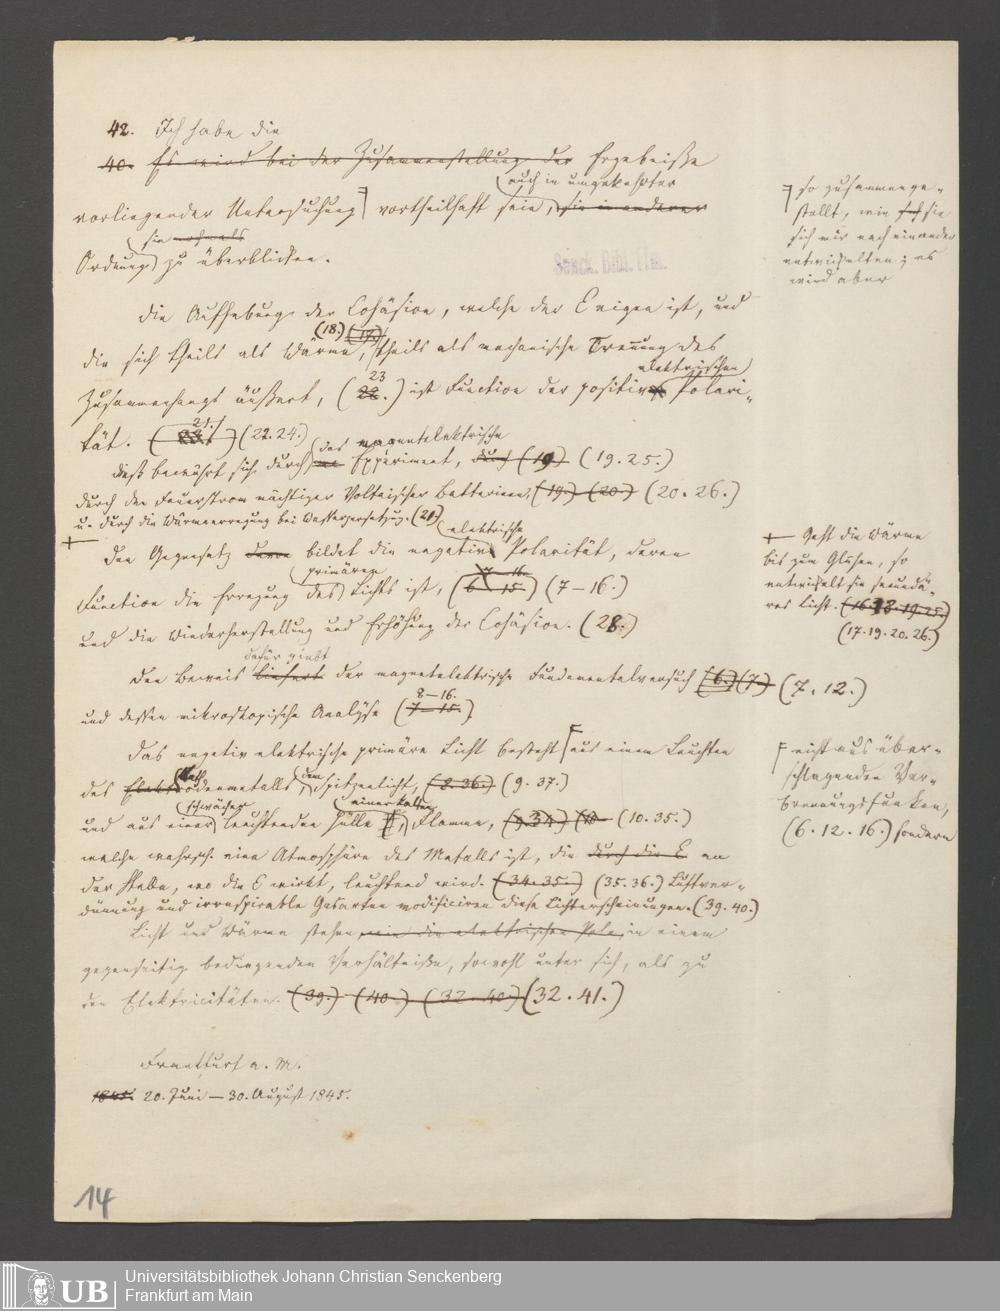 42. Ich habe die
40. Es wird bei der Zusammenstellung der Ergebniße
auch in umgekehrter
vorliegender Untersuchung vortheilhaft sein, sie in anderer
sie
Ordnung zu überblicken.
so zusammenge-
stellt, wie sie
sich mir nach einander
entwickelten; es
wird aber
Senck. Bibl. Ffm.
Die Aufhebung der Cohäsion, welche der E eigen ist, und
(18.) (17.)
die sich theils als Wärme, theils als mechanische Trennung des
elektrischen
23
Zusammenhangs äußert, (22.) ist Function der positiven Polari-
21.
tät. (22.24.)
das magnetelektrische
dieß bewährt sich durch Experiment, durch (19) (19.25.)
durch den Feuerstrom mächtiger Voltaischer Batterieen, (19.) (20.) (20.26.)
u. durch die Wärmeerregung bei Wasserzersetzung. (21.)
elektrische
Den Gegensatz davon bildet die negative Polarität, deren
primären 7 16.
Function die Erregung des Lichts ist, (6 15.) (7–16.)
und die Wiederherstellung und Erhöhung der Cohäsion. (28.)
+ Geht die Wärme
bis zum Glühen, so
entwickelt sie secundä-
res Licht.
(17.19.20.26.)
dafür giebt
Den Beweis liefert der magnetelektrische Fundamentalversuch (6.) (7.) (7.12.)
8–16.
und dessen mikroskopische Analyse (7–15.)
Das negativ elektrische primäre Licht besteht aus einem Leuchten
des Elektrodenmetalls, dem Spitzenlicht, (8.36.) (9.37.)
schwächer einer kalten
und aus einer leuchtenden Hülle, Flamme, (9.34) (10.35.)
nicht aus über-
schlagenden Ver-
brennungsfunken,
(6.12.16.) sondern
welche wahrsch. eine Atmosphäre des Metalls ist, die durch die E an
der Stelle, wo die E wirkt, leuchtend wird. (34.35.) (35.36.) Luftver-
dünnung und irrespirable Gasarten modificiren diese Lichterscheinungen. (39.40.)
Licht und Wärme stehen, wie die elektrischen Pole, in einem
gegenseitig bedingenden Verhältniße, sowohl unter sich, als zu
den Elektricitäten. (39.) (40.) (32.40) (32.41.)
Frankfurt a. M.
1845. 20. Juni – 30. August 1845.
14
UB Universitätsbibliothek Johann Christian Senckenberg
Frankfurt am Main